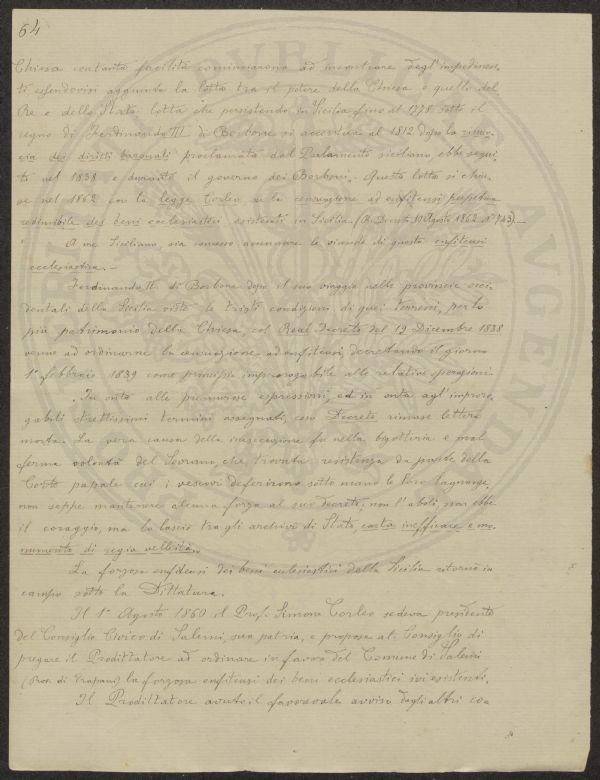 64
Chiesa con tanta facilità cominciarono ad incontrare degl'impedimen-
ti essendovisi aggiunta la lotta tra il potere della Chiesa e quello del
Re e dello Stato lotta che persistendo in Sicilia fino al 1778 sotto il
regno di Ferdinando III di Borbone si accentua al 1812 dopo la rinun-
cia dei diritti baronali proclamata dal Parlamento siciliano ebbe segui-
to nel 1838 e durante il governo dei Borboni. Questa lotta si chiu-
se nel 1862 con la legge Corleo su la concessione ad enfiteusi perpetua
redimibile dei beni ecclesiastici esistenti in Sicilia (R. Decreto 10 Agosto 1862 N. 743).—
A me Siciliano, sia concesso accennare le vicende di questa enfiteusi
ecclesiastica.—
Ferdinando II di Borbone dopo il suo viaggio nelle provincie occi-
dentali della Sicilia viste le tristi condizioni di quei terreni, per lo
più patrimonio della Chiesa, col Real Decreto del 12 Dicembre 1838
venne ad ordinarne la censuazione ad enfiteusi, decretando il giorno
1° febbraio 1839 come principio improrogabile alle relative operazioni.
In onta alle premurose espressioni, ed in onta agl'improro-
gabili strettissimi termini assegnati, così Decreto rimase lettera
morta. La vera causa della inesecuzione fu nella bigotteria e mal
ferma volontà del Sovrano, che trovata resistenza da parte della
Corte papale cui i vescovi deferirono sotto mano le loro lagnanze,
non seppe mantenere alcuna forza al suo decreto; non l'abolì, non ebbe
il coraggio, ma lo lasciò tra gli archivi di Stato, carta inefficace e mo-
numento di regia velleità.
La forzosa enfiteusi dei beni ecclesiastici della Sicilia ritornò in
campo sotto la Dittatura.
Il 1° Agosto 1860 il Prof. Simone Corleo sedeva presidente
del Consiglio Civico di Salemi, sua patria, e propose al Consiglio di
pregare il Prodittatore ad ordinare in favore del Comune di Salemi
(Prov. di Trapani) la forzosa enfiteusi dei beni ecclesiastici ivi esistenti.
Il Prodittatore avuto il favorevole avviso dagli altri co-